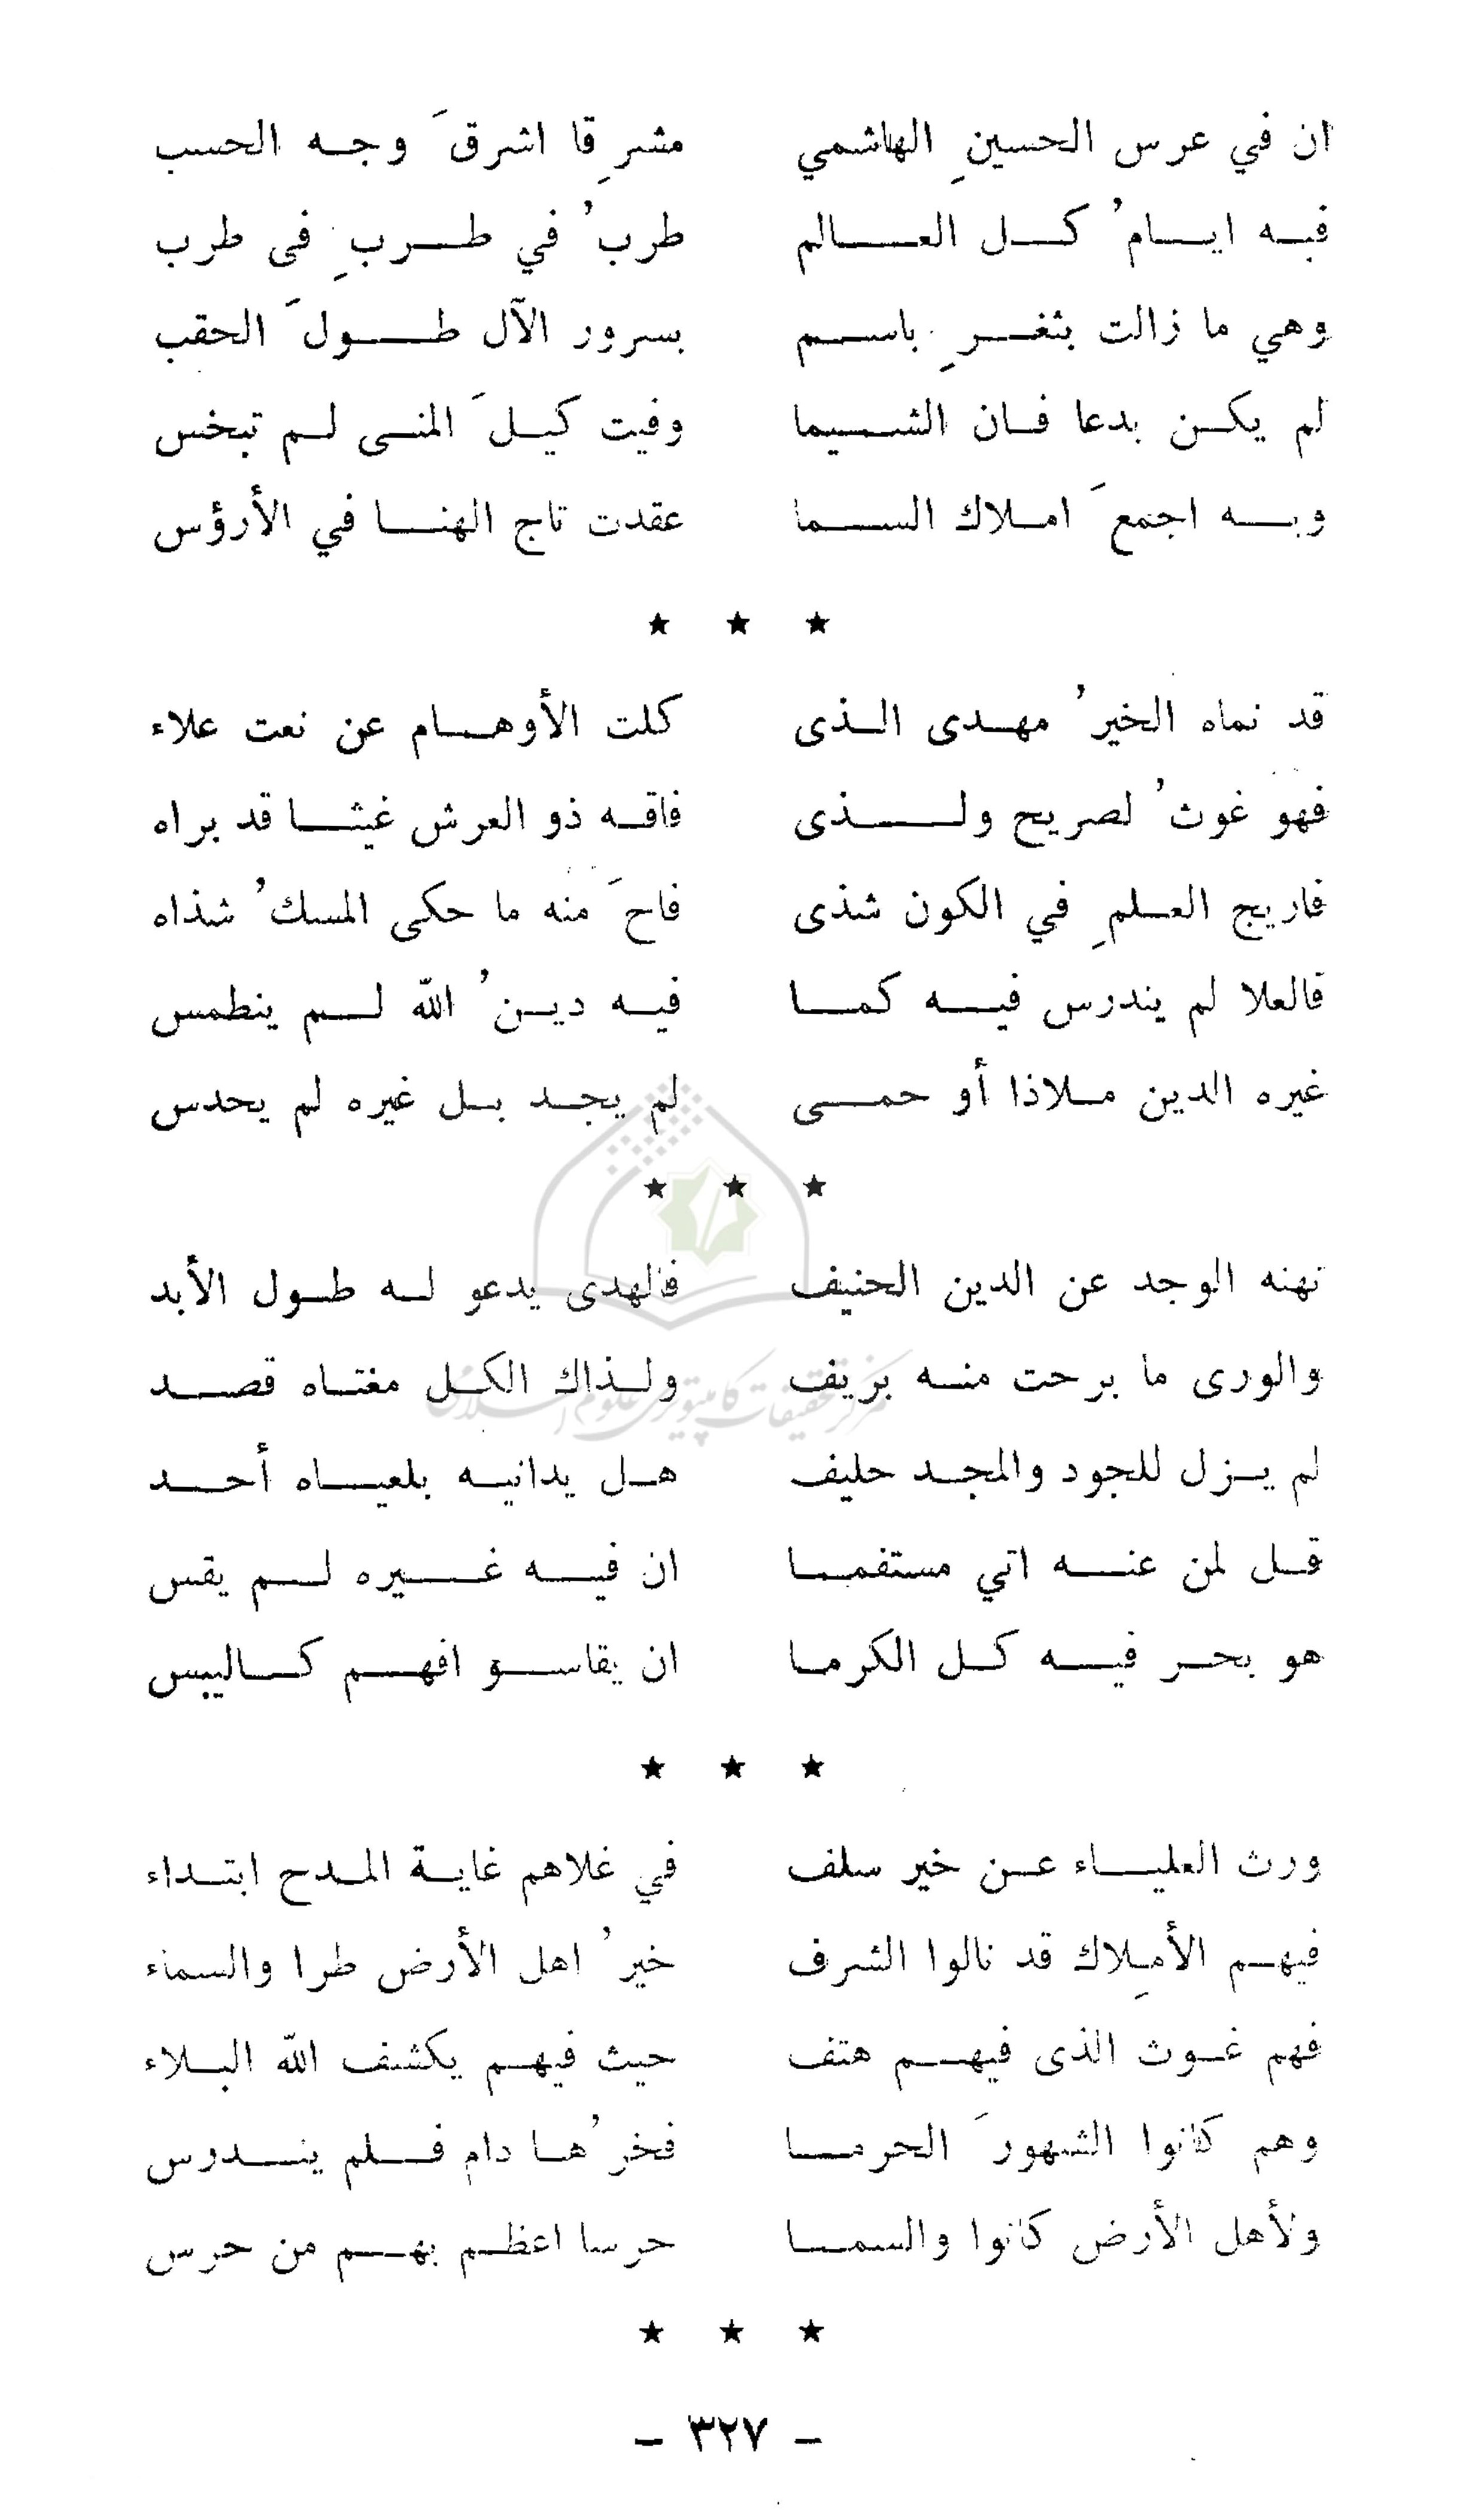 ان في عرس الحسينِ الهاشمي مشرِقا اشرقَ وجه الحسب
فيه ايامُ كل العالم طربُ في طربِ في طرب
وهي ما زالت بثغرِ باسم بسرور الآل طولَ الحقب
لم يكن بدعا فان الشيما وفيت كيلَ المنى لم تبخس
وبه اجمعَ املاك السما عقدت تاج الهنا في الأرؤس
★ ★ ★
قد نماه الخيرُ مهدى الذى كلت الأوهام عن نعت علاء
فهو غوثُ لصريح ولذى فاقه ذو العرش غيثا قد براه
فاريج العلمِ في الكون شذى فاحَ منه ما حكى المسكُ شذاه
فالعلا لم يندرس فيه كما فيه دينُ الله لم ينطمس
غيره الدين ملاذا أو حمى لم يجد بل غيره لم يحدس
★ ★ ★
نهنه الوجد عن الدين الحنيف فالهدى يدعو له طول الأبد
والورى ما برحت منه بريف ولذاك الكل مغتاه قصد
لم يزل للجود والمجد حليف هل يدانيه بلعياه أحد
قل لمن عنه اتي مستفمما ان فيه غيره لم يقس
هو بحر فيه كل الكرما ان يقاسو افهم كاليبس
★ ★ ★
ورث العلياء عن خير سلف في غلاهم غاية المدح ابتداء
فيهم الأمِلاك قد نالوا الشرف خيرُ اهل الأرض طرا والسماء
فهم غوث الذى فيهم هتف حيث فيهم يكشف الله البلاء
وهم كانوا الشهورَ الحرما فخرُها دام فلم يندرس
ولأهل الأرض كانوا والسما حرسا اعظم بهم من حرس
★ ★ ★
– ٣٢٧ –
مركز تحقيقات كامپيوترى علوم اسلامى